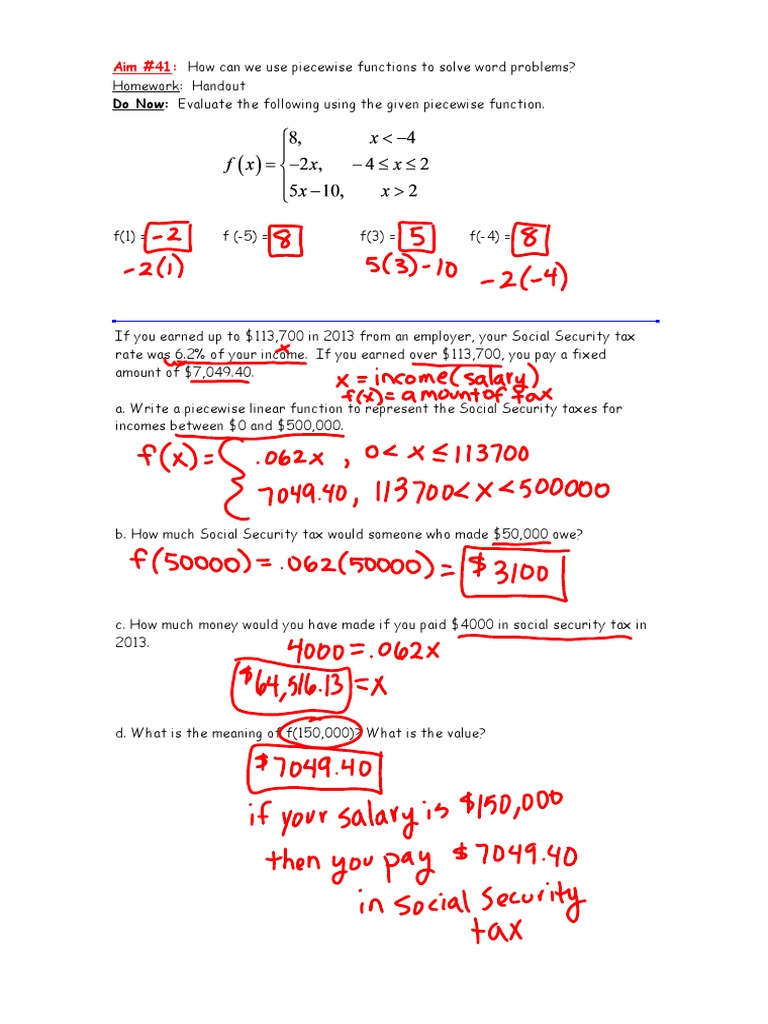 Aim #41: How can we use piecewise functions to solve word problems?
Homework: Handout
Do Now: Evaluate the following using the given piecewise function.
8, x < −4
f(x) = { −2x, −4 ≤ x ≤ 2
5x − 10, x > 2
f(1) = -2 f (-5) = 8 f(3) = 5 f(-4) = 8
-2(1) 5(3)-10 -2(-4)
If you earned up to $113,700 in 2013 from an employer, your Social Security tax
x
rate was 6.2% of your income. If you earned over $113,700, you pay a fixed
amount of $7,049.40.
x = income (salary)
f(x) = amount of tax
a. Write a piecewise linear function to represent the Social Security taxes for
incomes between $0 and $500,000.
f(x) = { .062x , 0 < x ≤ 113700
7049.40, 113700 < x < 500000
b. How much Social Security tax would someone who made $50,000 owe?
f(50000) = .062(50000) = $3100
c. How much money would you have made if you paid $4000 in social security tax in
2013.
4000 = .062x
$64,516.13 = x
d. What is the meaning of f(150,000)? What is the value?
$7049.40
if your salary is $150,000
then you pay $7049.40
in social security
tax